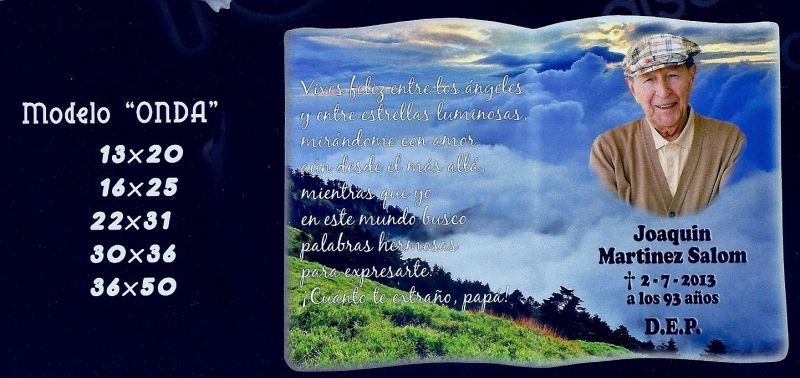 Modelo "ONDA"
13x20
16x25
22x31
30x36
36x50
Vives feliz entre los ángeles
y entre estrellas luminosas,
mirándome con amor
aún desde el más allá,
mientras que yo
en este mundo busco
palabras hermosas
para expresarte:
¡Cuánto te extraño, papá!
Joaquin
Martinez Salom
† 2-7-2013
a los 93 años
D.E.P.